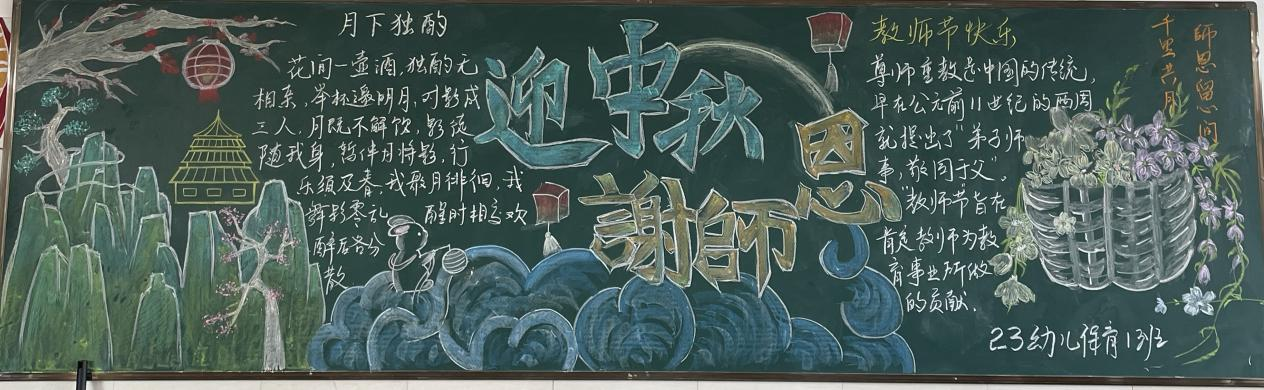 月下独酌
花间一壶酒,独酌无
相亲,举杯邀明月,对影成
三人,月既不解饮,影徒
随我身,暂伴月将影,行
乐须及春,我歌月徘徊,我
舞影零乱 醒时相交欢
醉后各分
散
迎中秋
謝師恩
教师节快乐
尊师重教是中国的传统,
早在公元前11世纪的西周
就提出了“弟子师
事,敬同于父”。
“教师节”旨在
肯定教师为教
育事业所做
的贡献.
千里共月
師恩留心间
23幼儿保育1班